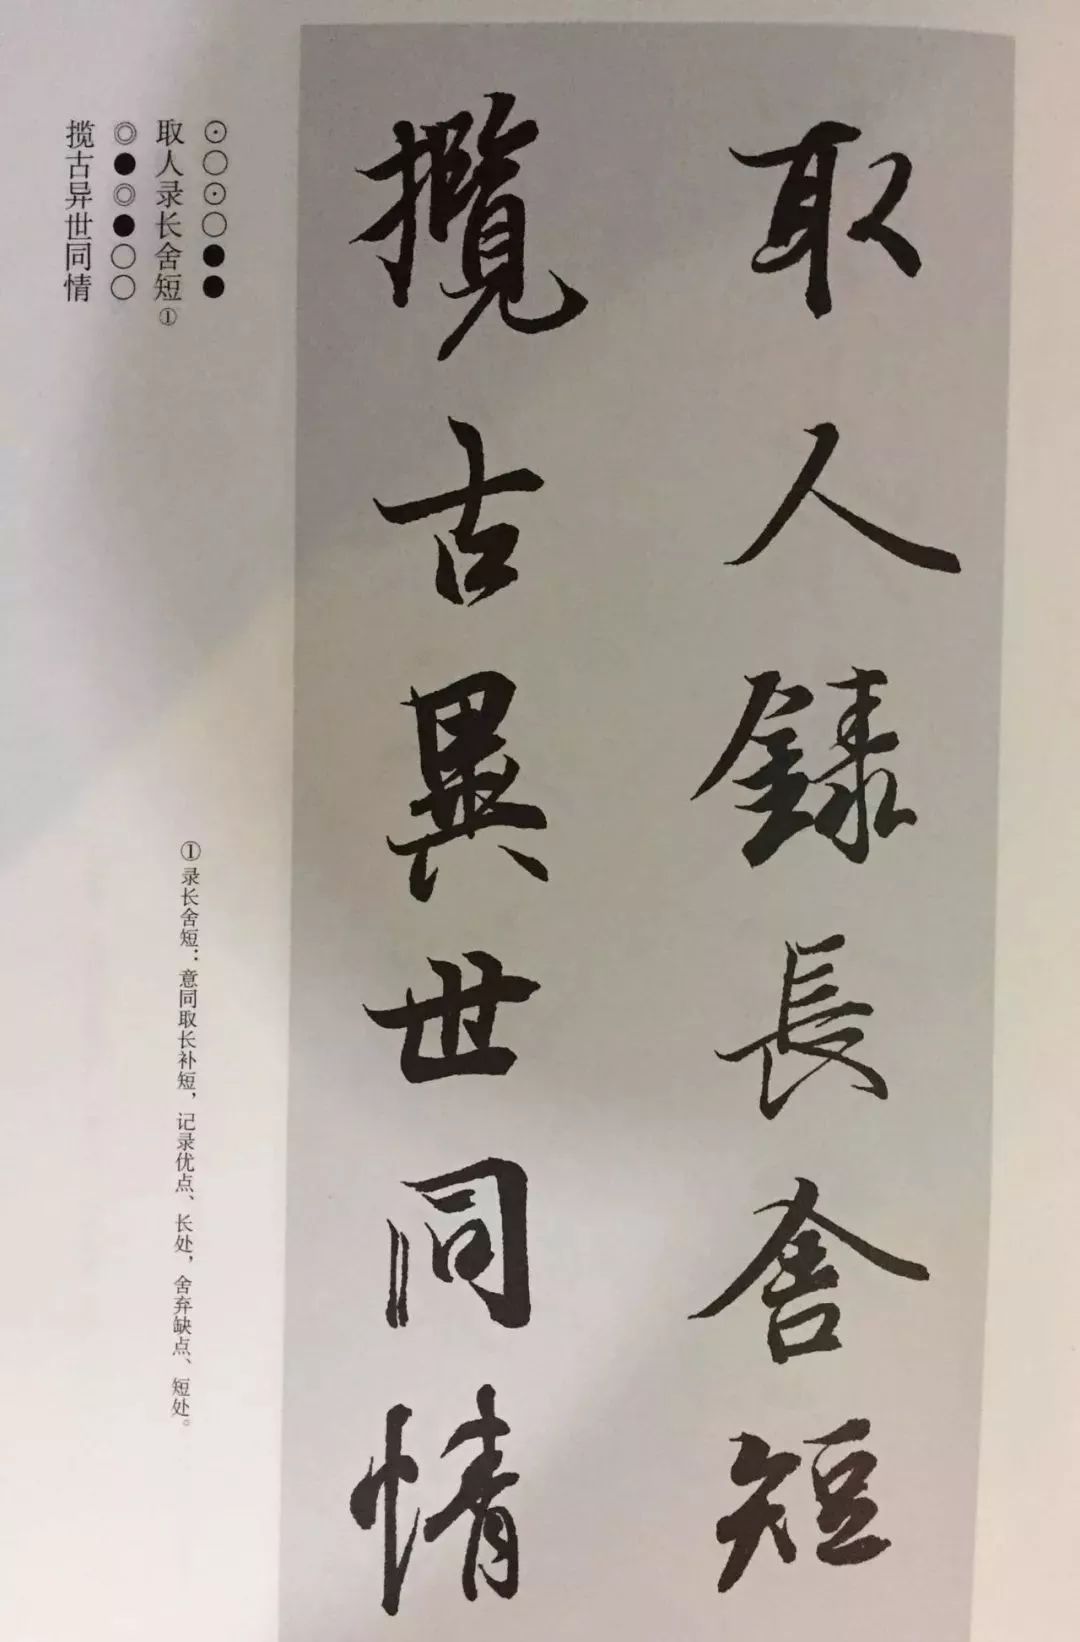 取人錄長舍短
攬古異世同情
⊙○⊙○●●
取人录长舍短①
◎●◎●○○
揽古异世同情
①录长舍短：意同取长补短，记录优点、长处，舍弃缺点、短处。